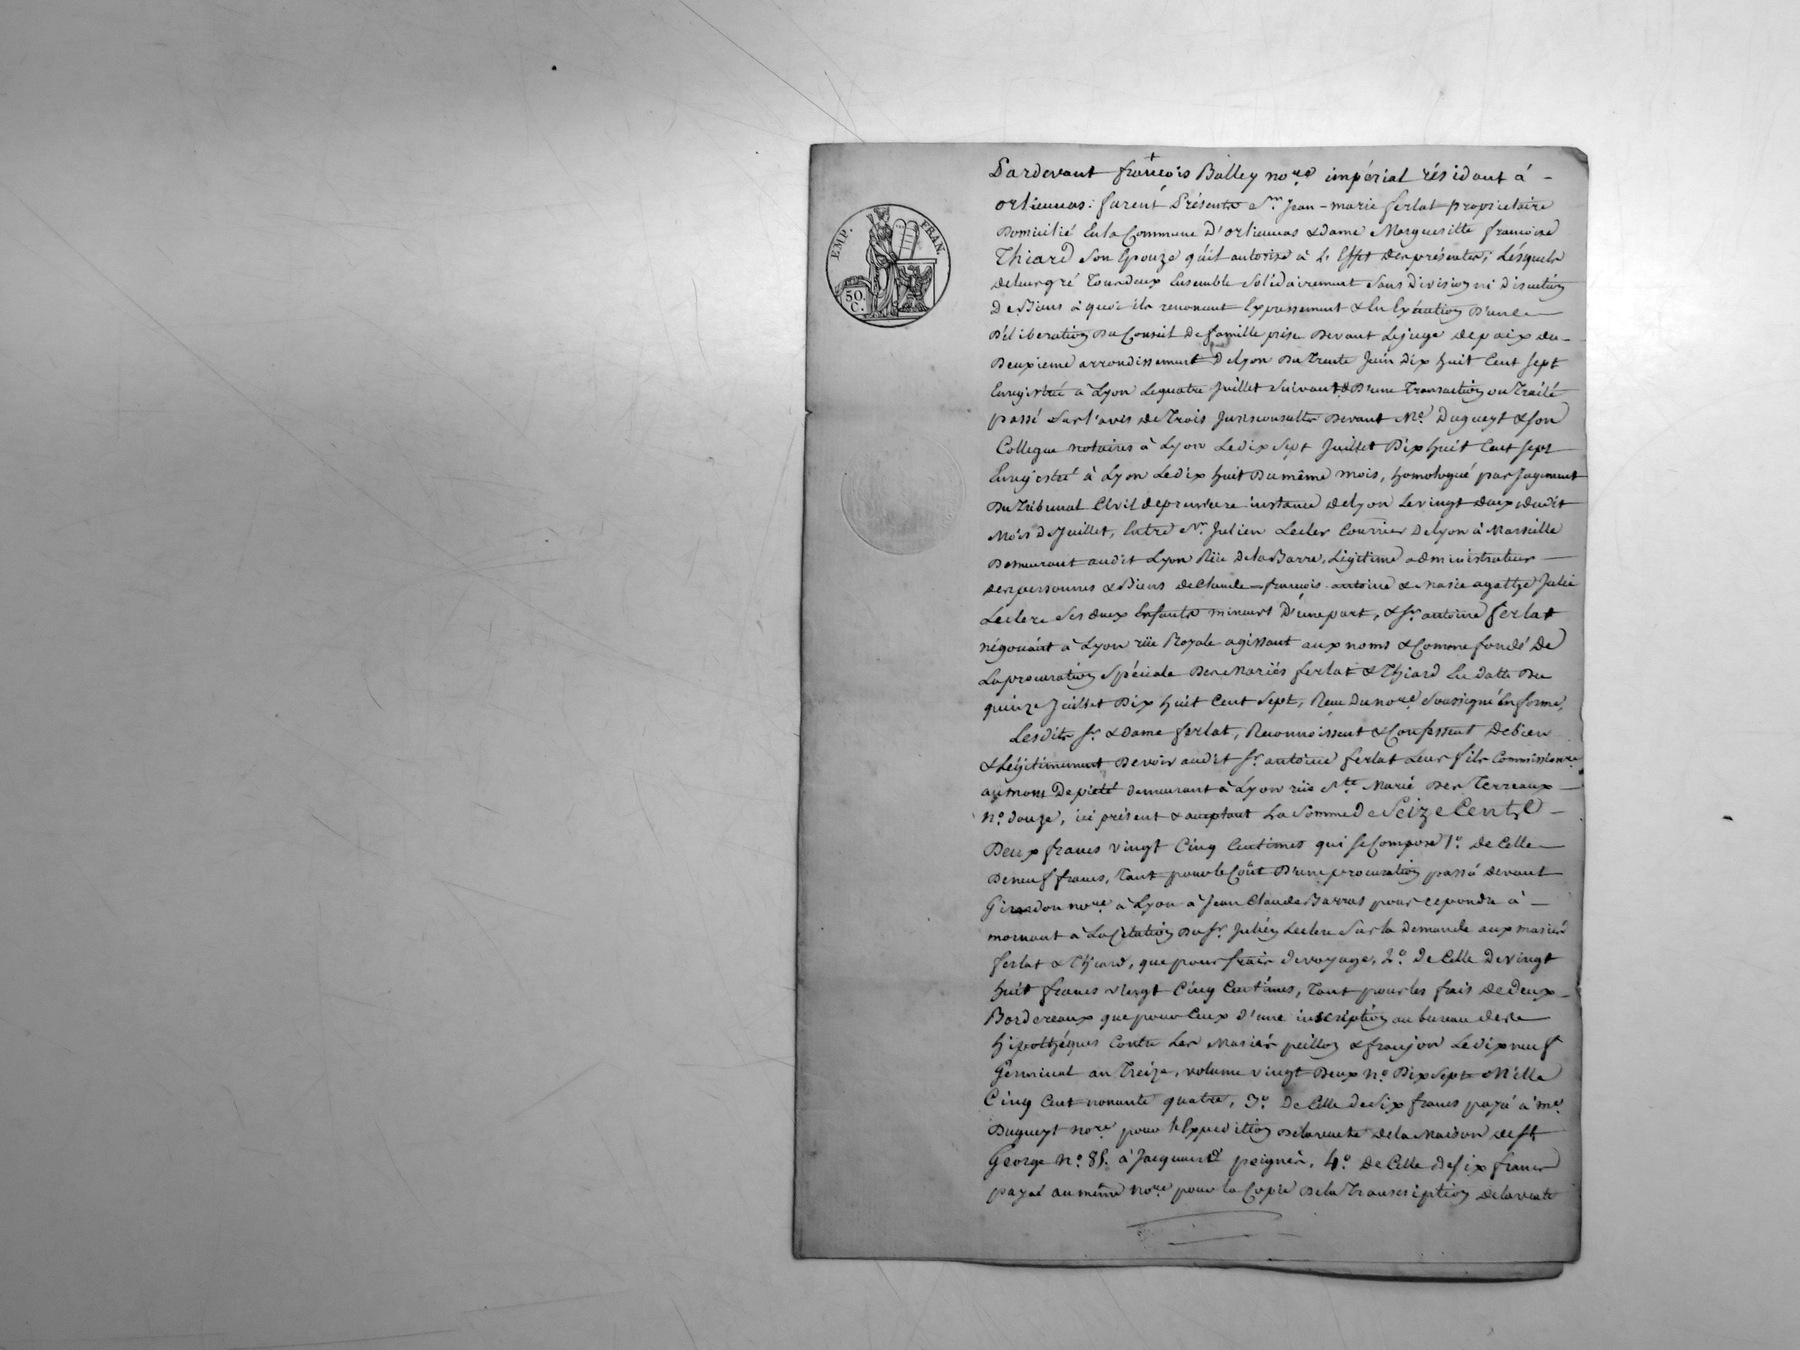 EMP. FRAN.
50.
C.
Pardevant françois Balley no.re impérial résidant á -
orliennas: furent Présents Sr. Jean-marie ferlat propriétaire
Domicilié En la Commune D'orliennas & dame Margueritte francoise
Thiard Son Epouze qu'il autorise à L'Effet des présentes, Lésquels
de leur gré Tous deux Ensemble Solidairement Sans Division ni Discution
De Biens à quoi ils renoncent Expressement & En Exécution D'une
Déliberation Du Conseil De famille prise Devant Le juge de paix du-
Deuxieme arrondissement De Lyon Du Trente Juin Dix huit Cent Sept
Enregistré à Lyon Le quatre Juillet Suivant & D'une Transaction ou Traité
passé Sur l'avis de Trois Jurisconsultes Devant Me. Dugueyt & son
Collegue notaires à Lyon Le dix Sept Juillet Dix huit Cent Sept
Enregistré à Lyon Le dix huit Du même mois, homologué par Jugement
Du Tribunal Civil de premiere instance de Lyon Le vingt deux dudit
Mois de Juillet, Entre Sr. Julien Leclerc Courrier De Lyon à Marseille
Demeurant audit Lyon Rüe De la Barre, Légitime administrateur
des personnes & Biens de Claude-françois antoine & marie agathe Julie
Léclerc Ses deux Enfants mineurs D'une part, & Sr. antoine ferlat
négociant à Lyon rüe Royale agissant aux noms & Comme fondé De
La procuration Spéciale Des Mariés ferlat & Thiard En datte Du
quinze Juillet Dix huit Cent Sept, Reçue Du no.re Soussigné En forme,
Lesdits Sr. & Dame ferlat, Reconnoissent & Confessent De bien
& Légitimement Devoir audit Sr. antoine ferlat Leur fils Commissionre.
au mont De pieté demeurant à Lyon rüe Ste. Marie Des Terreaux
N.o douze, ici présent & acceptant La Somme De Seize Cents
Deux francs vingt Cinq Centimes qui Se Compose 1.o de Celle
De neuf francs, Tant pour le Coût D'une procuration passé devant
Girardon no.re à Lyon à Jean Claude Barras pour repondre à -
mornant à La Citation Du Sr. Julien Leclerc Sur la Demande aux mariés
ferlat & Thiard, que pour frais de voyage, 2.o de Celle De vingt
huit francs vingt Cinq Centimes, Tant pour les frais De deux
Bordereaux que pour Ceux d'une inscription au bureau des
hipothéques Contre Les Mariés peillon & franjon Le dix neuf
Germinal an Treize, volume vingt Deux N.o Dix Sept Mille
Cinq Cent nonante quatre, 3.o De Celle de Six francs payé à Me.
Dugueyt no.re pour l'Expedition De la vente De la Maison de St
George N.o 85. à Jacquard peignés, 4.o De Celle de six francs
payé au même no.re pour la Copie De la Transcription De la vente